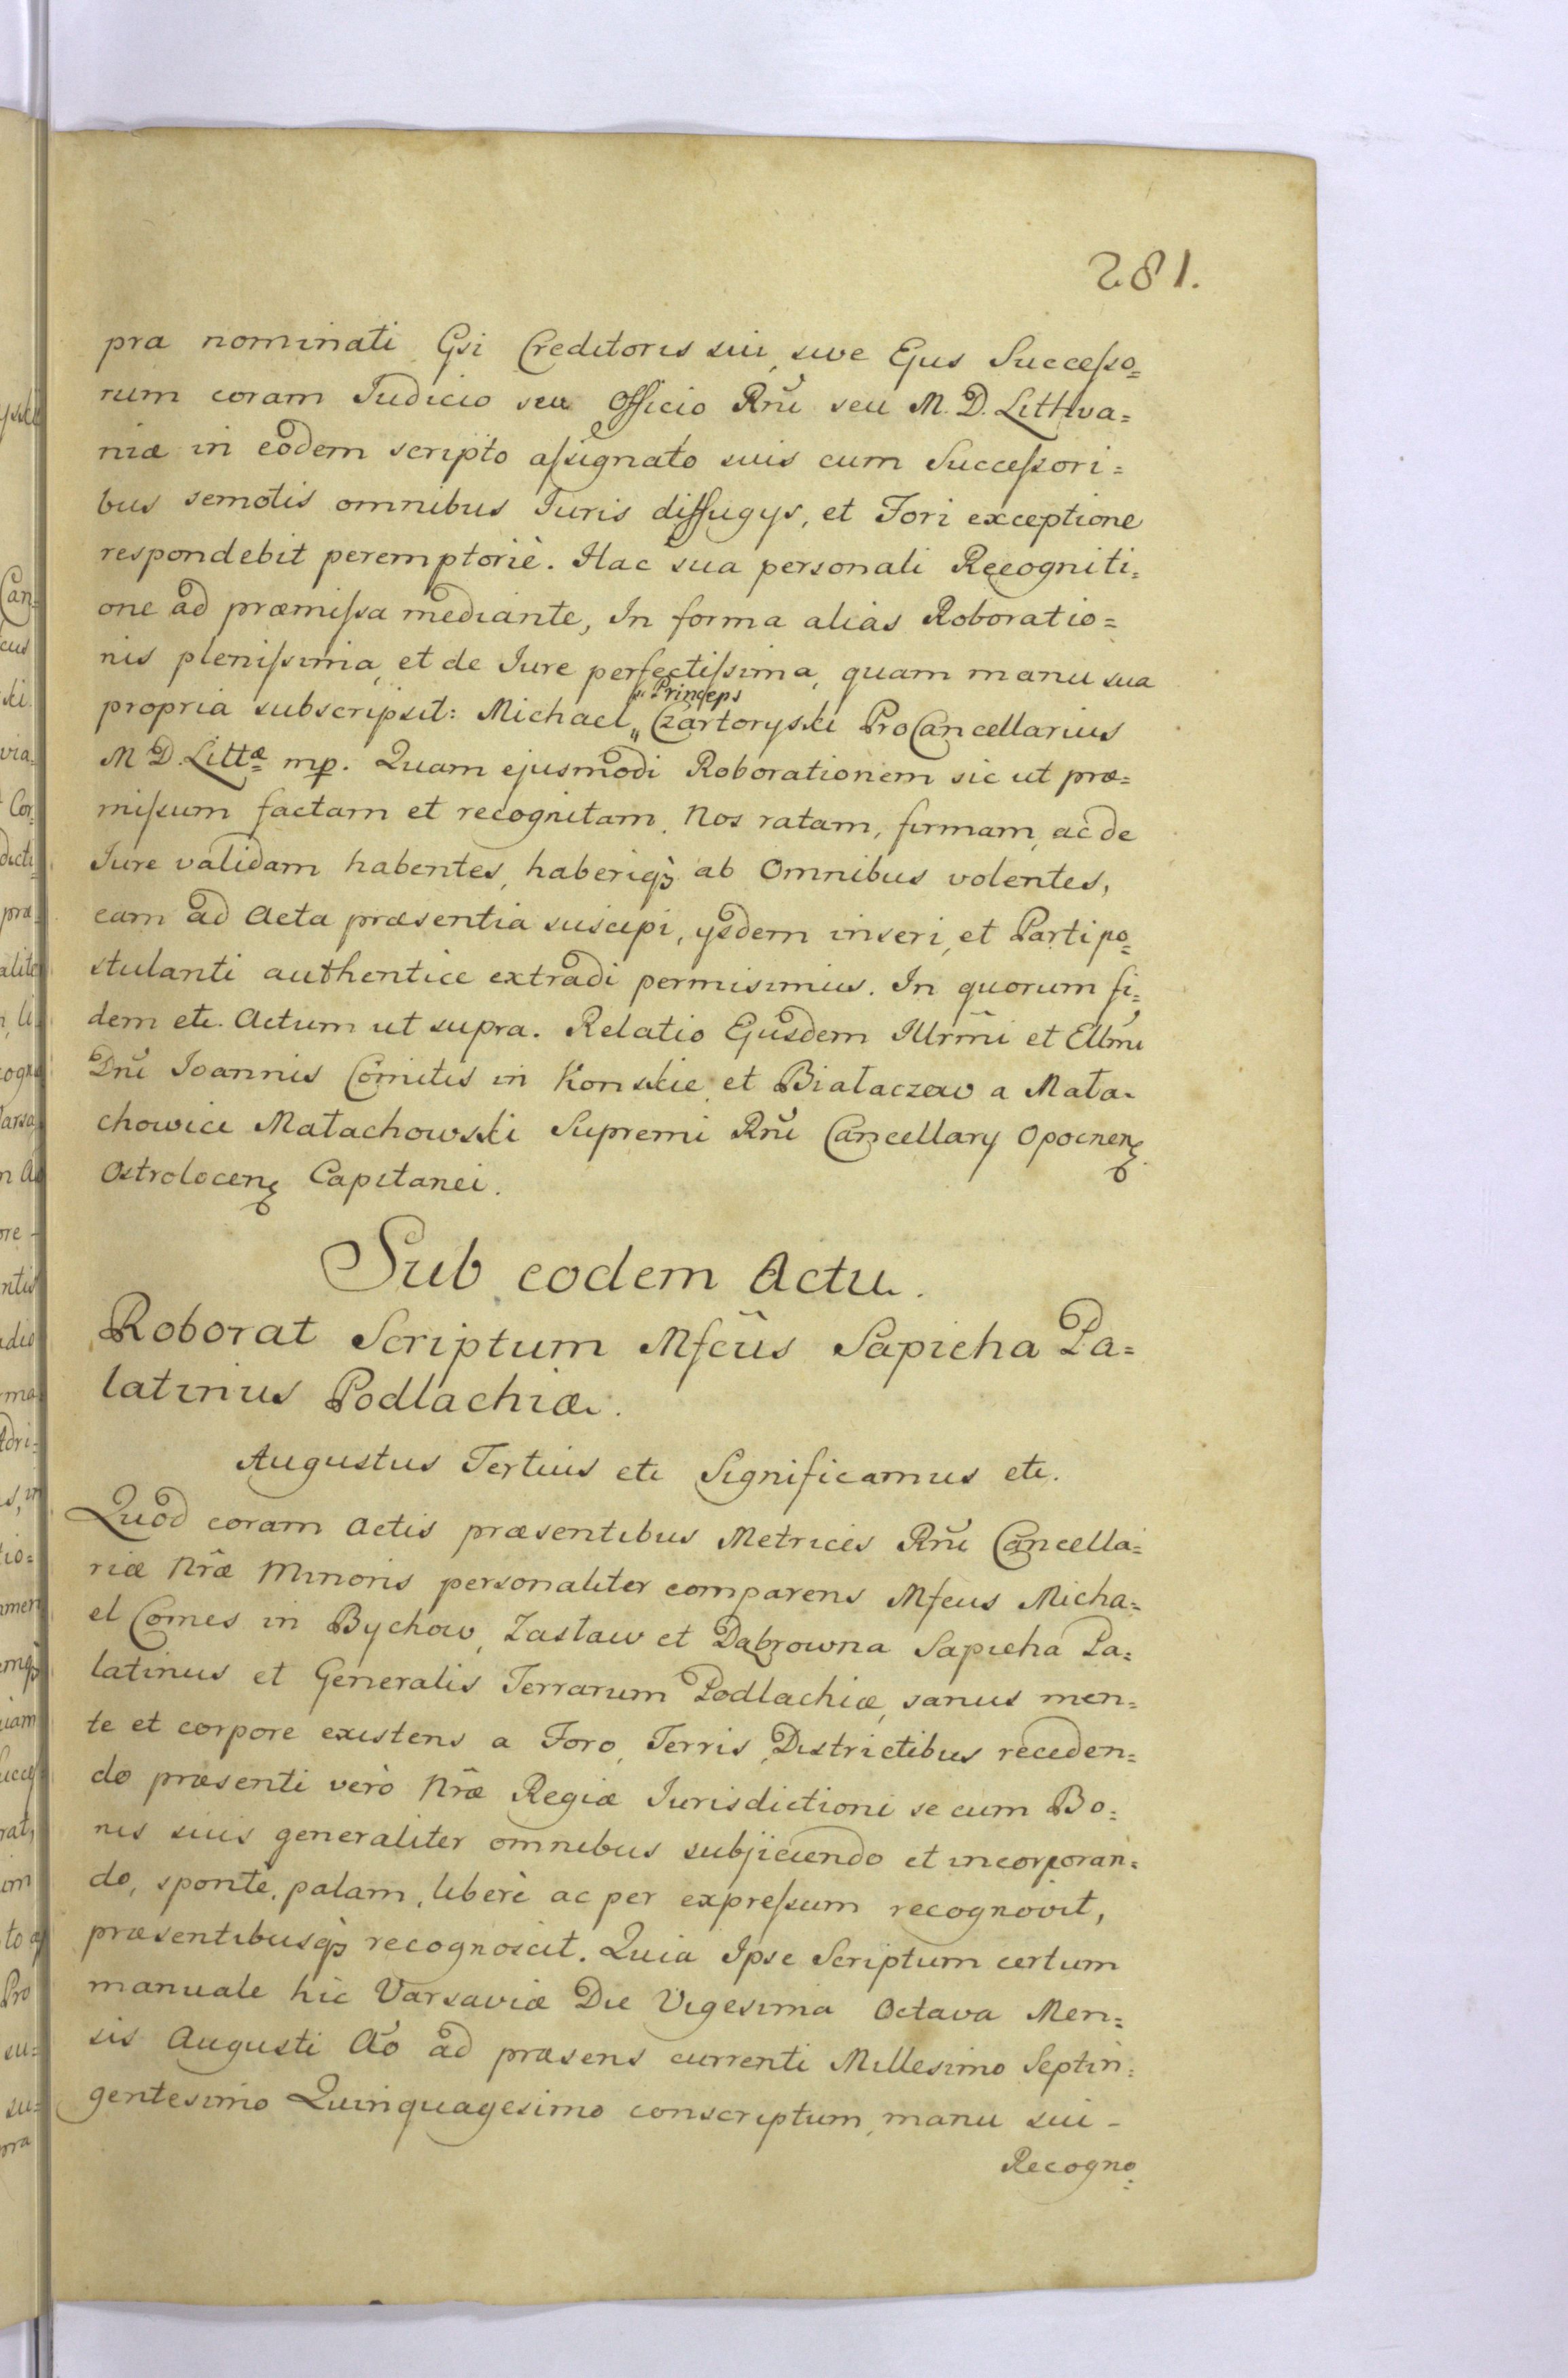 281.
pra nominati Gsi Creditoris sui, sive Ejus Successo=
rum coram Judicio seu Officio Rnĭ seu M. D. Lithva=
niæ in eodem scripto assignato suis cum Successori=
bus semotis omnibus Juris diffugys, et Fori exceptione
respondebit peremptoriè. Hac sua personali Recogniti=
one ad præmissa mediante, In forma alias Roboratio=
nis plenissima, et de Jure perfectissima, quam manu sua
„Princeps
propria subscripsit: Michael „ Czartoryski ProCancellarius
M D. Littæ mp. Quam ejusmodi Roborationem sic ut præ=
missum factam et recognitam, Nos ratam, firmam, ac de
Jure validam habentes, haberiqꝫ ab Omnibus volentes,
eam ad Acta præsentia suscipi, ysdem inseri, et Parti po=
stulanti authentice extradi permisimus. In quorum fi=
dem etc. Actum ut supra. Relatio Ejusdem Illrm̃i et Ellm̃i
Dnĭ Joannis Comitis in Konskie et Białaczew a Mała=
chowice Małachowski Supremi Rnĭ Cancellary Opocnen.
Ostrolocen. Capitanei.
Sub eodem Actu.
Roborat Scriptum Mfcus Sapieha Pa=
latinus Podlachiæ.
Augustus Tertius etc Significamus etc.
Quod coram Actis præsentibus Metrices Rnĭ Cancella=
riæ Nræ Minoris personaliter comparens Mfcus Micha=
el Comes in Bychow, Zasław et Dąbrowna Sapieha Pa=
latinus et Generalis Terrarum Podlachiæ, sanus men=
te et corpore existens a Foro, Terris, Districtibus receden=
do præsenti verò Nræ Regiæ Jurisdictioni se cum Bo=
nis suis generaliter omnibus subjiciendo et incorporan=
do, spontè, palam, liberè ac per expressum recognovit,
præsentibusqꝫ recognoscit. Quia Ipse Scriptum certum
manuale hic Varsaviæ Die Vigesima Octava Men=
sis Augusti Aō ad præsens currenti Millesimo Septin=
gentesimo Quinquagesimo conscriptum, manu sui -
Recogno=